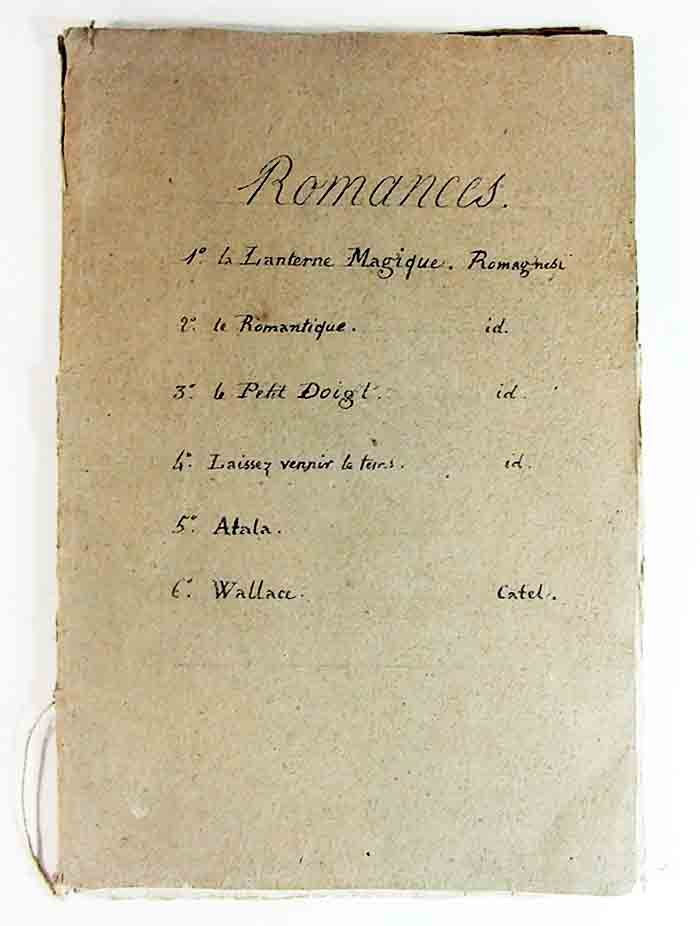 Romances.
1º. la Lanterne Magique. Romagnesi
2º. le Romantique. id.
3º. le Petit Doigt. id.
4º. Laissez vennir le tems. id.
5º. Atala.
6º. Wallace. Catel.